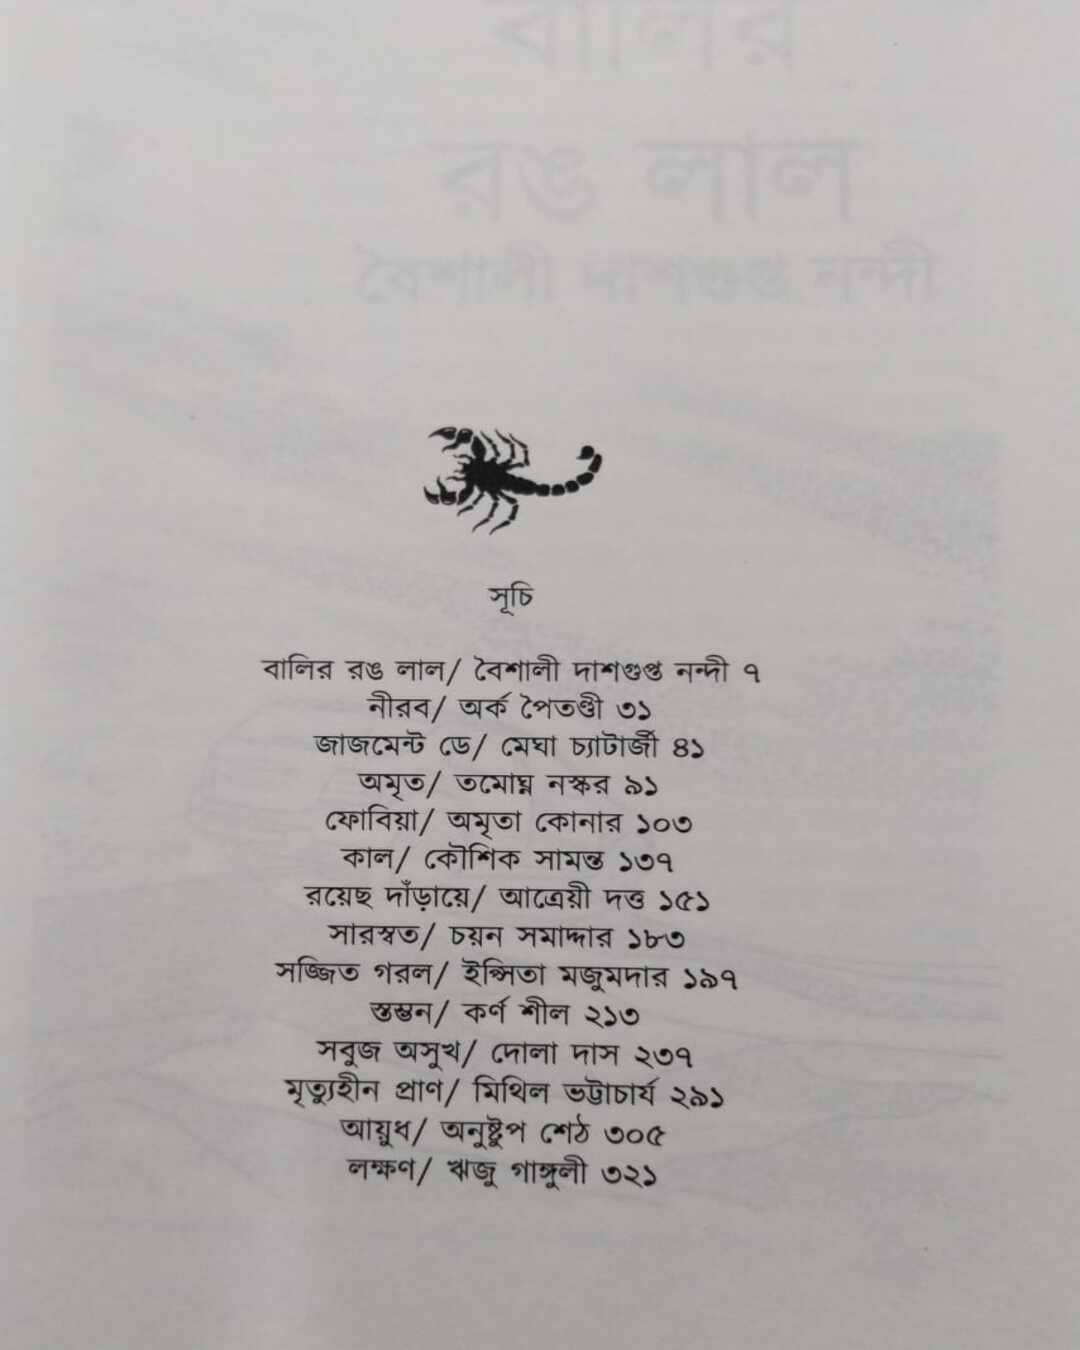 বালির
রঙ লাল
বৈশালী দাশগুপ্ত নন্দী
সূচি
বালির রঙ লাল/ বৈশালী দাশগুপ্ত নন্দী ৭
নীরব/ অর্ক পৈতণ্ডী ৩১
জাজমেন্ট ডে/ মেঘা চ্যাটার্জী ৪১
অমৃত/ তমোঘ্ন নস্কর ৯১
ফোবিয়া/ অমৃতা কোনার ১০৩
কাল/ কৌশিক সামন্ত ১৩৭
রয়েছ দাঁড়ায়ে/ আত্রেয়ী দত্ত ১৫১
সারস্বত/ চয়ন সমাদ্দার ১৮৩
সজ্জিত গরল/ ইপ্সিতা মজুমদার ১৯৭
স্তম্ভন/ কর্ণ শীল ২১৩
সবুজ অসুখ/ দোলা দাস ২৩৭
মৃত্যুহীন প্রাণ/ মিথিল ভট্টাচার্য ২৯১
আয়ুধ/ অনুষ্টুপ শেঠ ৩০৫
লক্ষণ/ ঋজু গাঙ্গুলী ৩২১